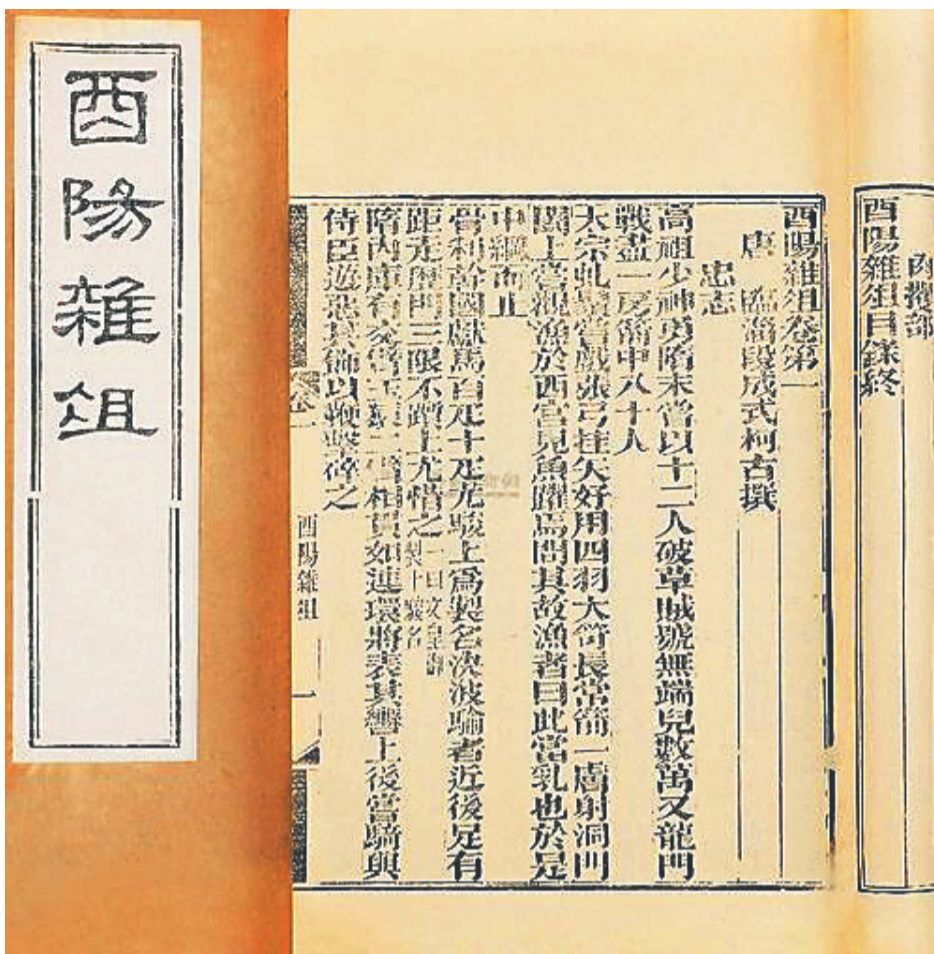 酉陽雜俎
肉攫部
酉陽雜俎目錄終
酉陽雜俎卷第一
唐 臨淄段成式柯古撰
忠志
高祖少神勇隋末嘗以十二人破草賊號無端兒數萬又龍門
戰盡一房箭中八十人
太宗虬鬚嘗戲張弓挂矢好用四羽大笴長常箭一膚射洞門
闔上嘗觀漁於西宮見魚躍焉問其故漁者曰此當乳也於是
中網而止
骨利幹國獻馬百疋十疋尤駿上爲製名決波騟者近後足有
距走歷門三限不躓上尤惜之一曰文皇製十驥名
隋內庫有交臂玉猿二臂相貫如連環將表其轡上後嘗騎與
侍臣遊惡其飾以鞭擊碎之
卷一
酉陽雜俎 一